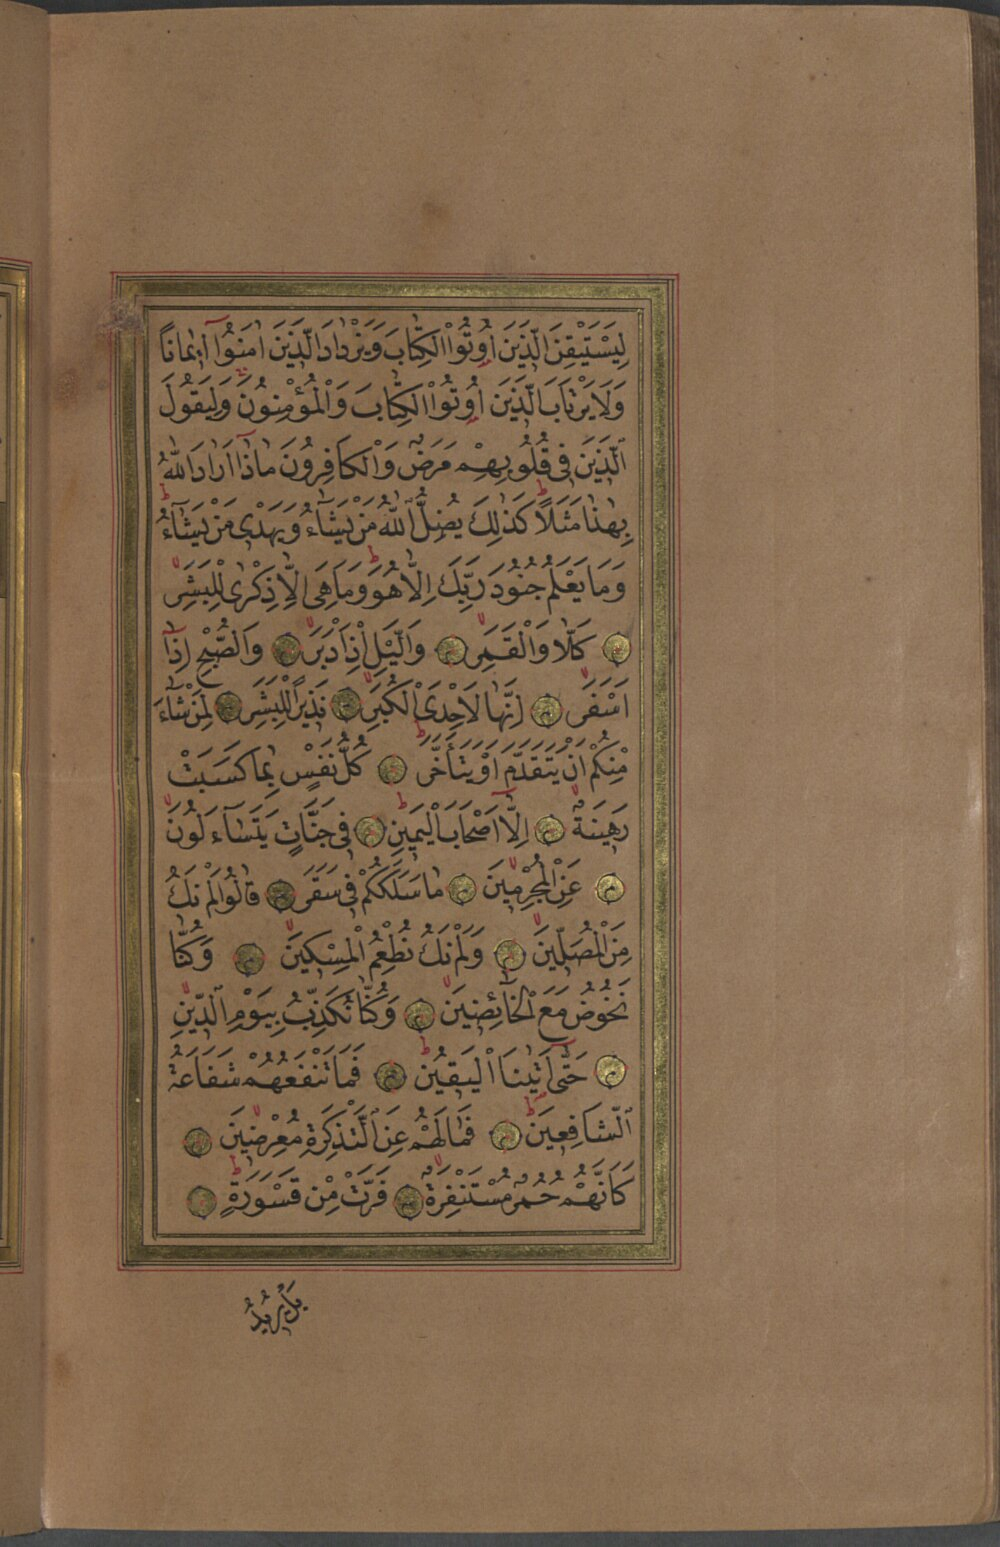 لِيَسْتَيْقِنَ الَّذِينَ اُوتُوا الْكِتَابَ وَيَزْدَادَ الَّذِينَ اٰمَنُٓوا اٖيمَانًا
وَلَا يَرْتَابَ الَّذِينَ اُوتُوا الْكِتَابَ وَالْمُؤْمِنُونَ وَلِيَقُولَ
الَّذِينَ فِى قُلُوبِهِمْ مَرَضٌ وَالْكَافِرُونَ مَاذَٓا اَرَادَ اللّٰهُ
بِهٰذَا مَثَلًا كَذٰلِكَ يُضِلُّ اللّٰهُ مَنْ يَشَٓاءُ وَيَهْدِى مَنْ يَشَٓاءُ
وَمَا يَعْلَمُ جُنُودَ رَبِّكَ اِلَّا هُوَ وَمَا هِىَ اِلَّا ذِكْرٰى لِلْبَشَرِ
كَلَّا وَالْقَمَرِ وَالَّيْلِ اِذْ اَدْبَرَ وَالصُّبْحِ اِذَٓا
اَسْفَرَ اِنَّهَا لَاِحْدَى الْكُبَرِ نَذِيرًا لِلْبَشَرِ لِمَنْ شَٓاءَ
مِنْكُمْ اَنْ يَتَقَدَّمَ اَوْ يَتَاَخَّرَ كُلُّ نَفْسٍ بِمَا كَسَبَتْ
رَهِينَةٌ اِلَّٓا اَصْحَابَ الْيَمِينِ فِى جَنَّاتٍ يَتَسَٓاءَلُونَ
عَنِ الْمُجْرِمِينَ مَا سَلَكَكُمْ فِى سَقَرَ قَالُوا لَمْ نَكُ
مِنَ الْمُصَلِّينَ وَلَمْ نَكُ نُطْعِمُ الْمِسْكِينَ وَكُنَّا
نَخُوضُ مَعَ الْخَٓائِضِينَ وَكُنَّا نُكَذِّبُ بِيَوْمِ الدِّينِ
حَتّٰٓى اَتٰينَا الْيَقِينُ فَمَا تَنْفَعُهُمْ شَفَاعَةُ
الشَّافِعِينَ فَمَا لَهُمْ عَنِ التَّذْكِرَةِ مُعْرِضِينَ
كَاَنَّهُمْ حُمُرٌ مُسْتَنْفِرَةٌ فَرَّتْ مِنْ قَسْوَرَةٍ
بَلْ يُرِيدُ